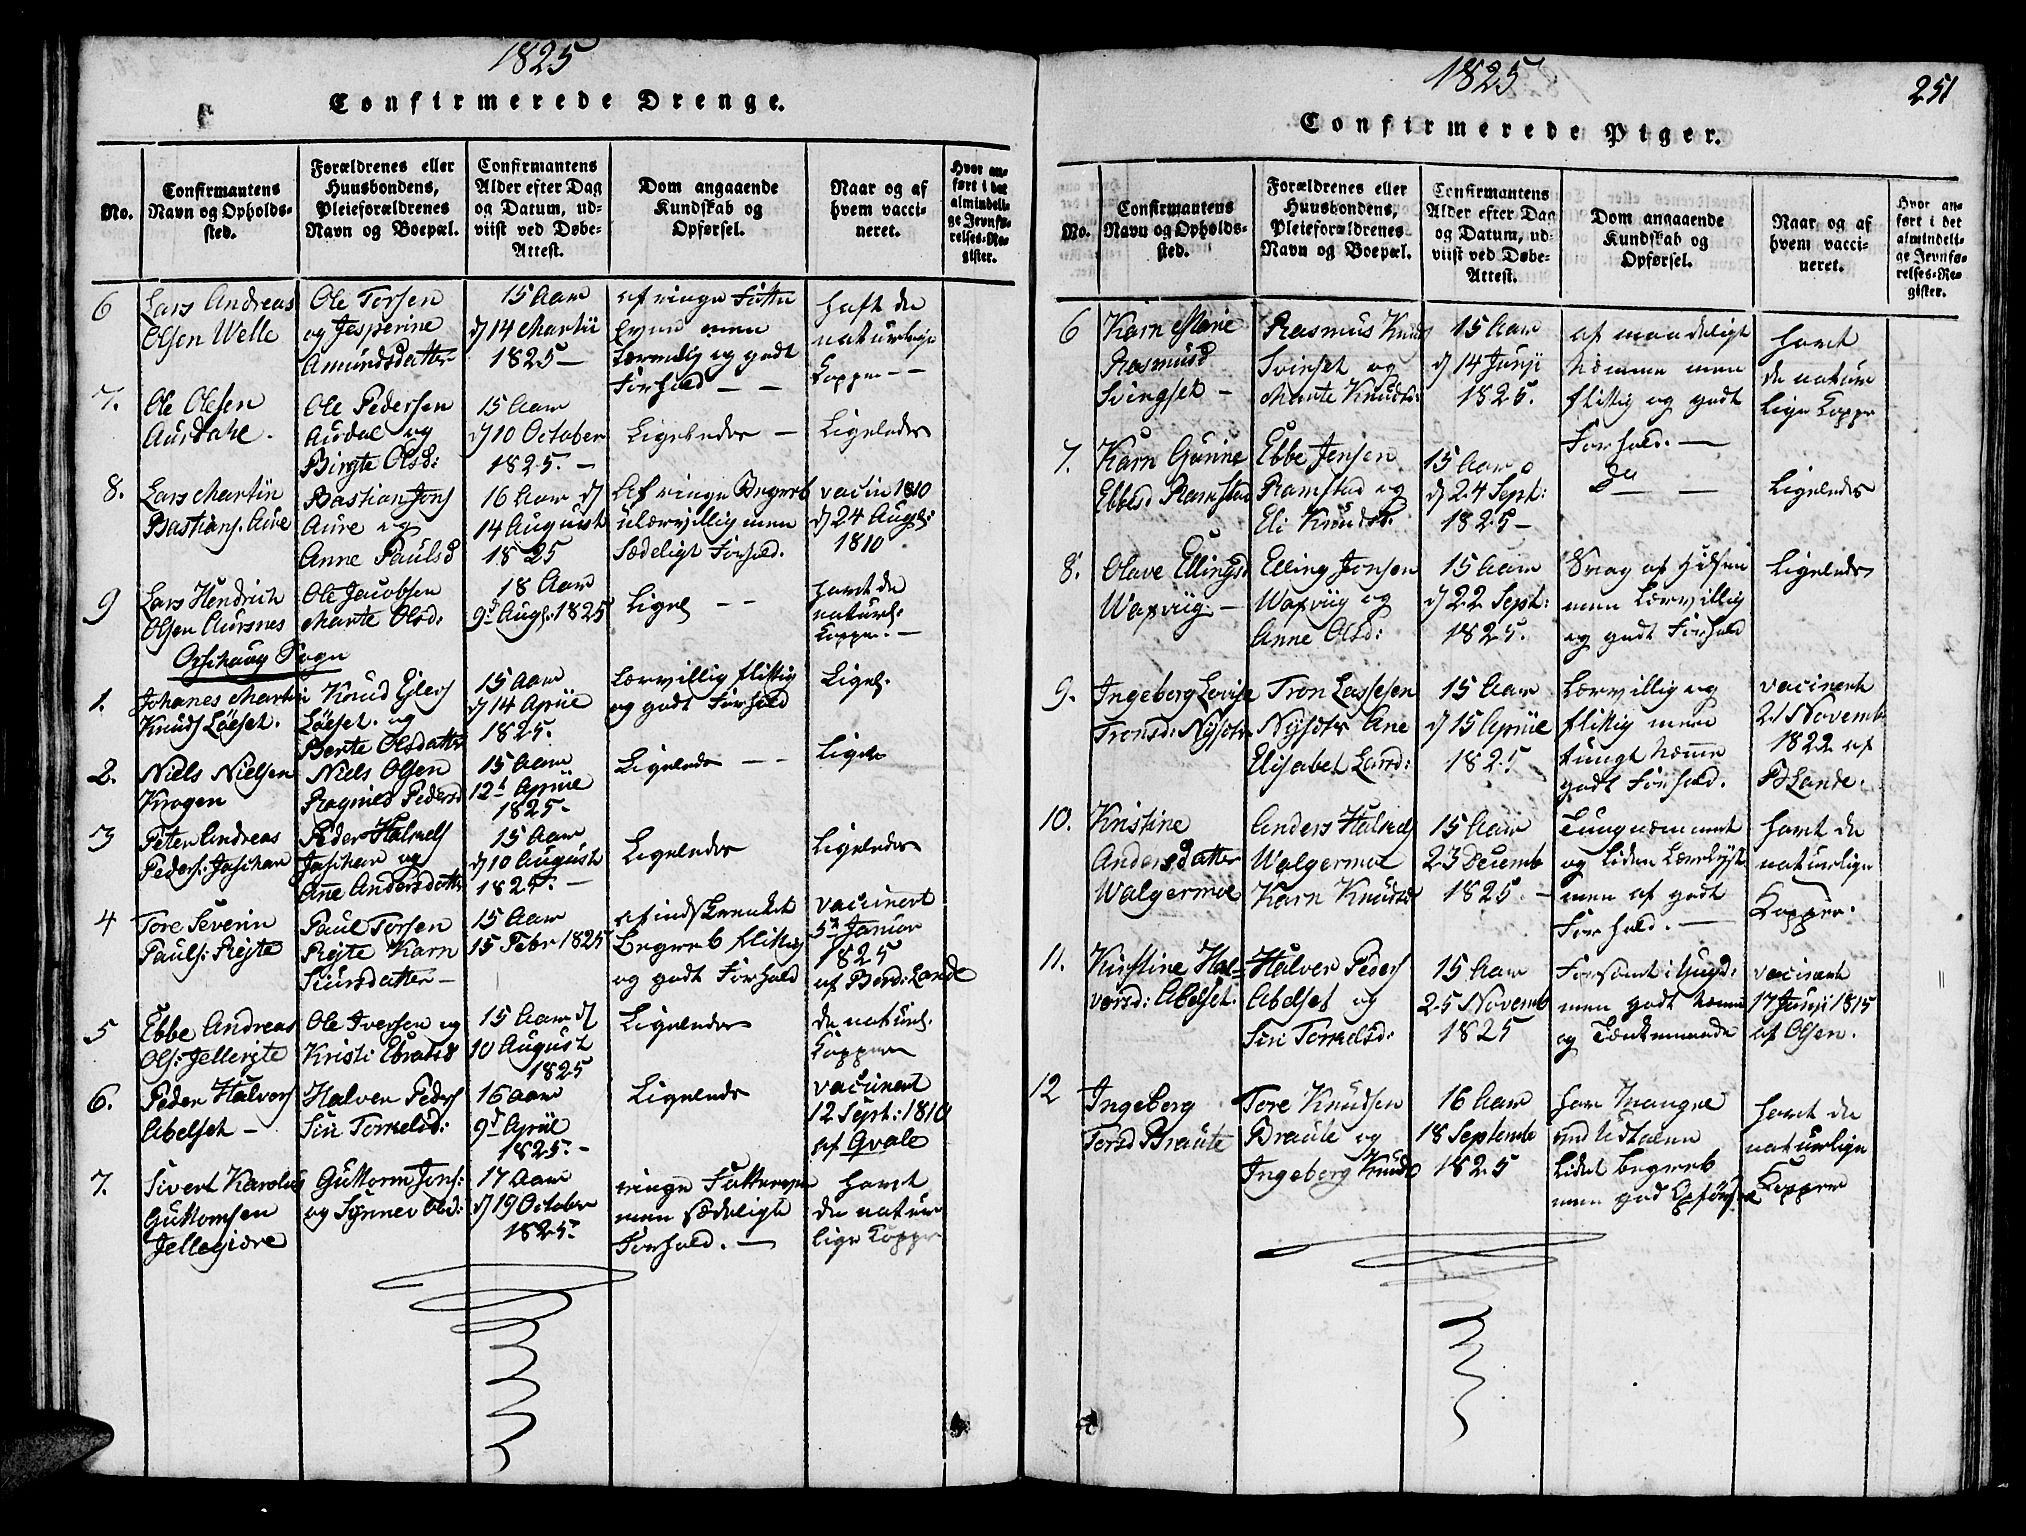 1825
Confirmerede Drenge.
No.
Confirmantens Navn og Opholds-sted.
Forældrenes eller Huusbondens, Pleieforældrenes Navn og Boepæl.
Confirmantens Alder efter Dag og Datum, ud-viist ved Døbe-Attest.
Dom angaaende Kundskab og Opførsel.
Naar og af hvem vacci-neret.
Hvor an-ført i det almindeli-ge Jevnfø-relses-Re-gister.
6
Lars Andreas
Olsen Welle
Ole Torsen
og Jasperine
Amundsdatter
15 Aar
d 14 Martii
1825 —
af ringe Fatte
Evne men
lærvillig og godt
Forhold — —
haft de
naturlige
Kopper — —
7.
Ole Olsen
Aurdahl.
Ole Pedersen
Aurdal og
Birgte Olsd:
15 Aar
d 10 October
1825. —
Ligeledes —
Ligeledes
8.
Lars Martin
Bastians. Aure
Bastian Jons
Aure og
Anne Paulsd
16 Aar d
14 August
1825
Af ringe Begreb
ulærvillig men
sædeligt Forhold.
vacin 1810
d 24 Augs:
1810
9
Lars Hendrich
Olsen Aursnes
Ole Jacobsen
Marte Olsd:
18 Aar
9d Augs: 1825
Ligel — —
havt de
naturl.
Kopper. —
Sogn
1.
Johanes Martin
Knuds Løeset.
Knud Ejlers
Løeset. og
Berte Olsdatter
15 Aar
d 14 Apriil
1825.
Lærvillig flittig
og godt Forhold
Ligel.
2.
Niels Nielsen
Krogen
Niels Olsen
Ragnild Pedersd
15 Aar
12t Apriil
1825. -
Ligeledes — -
Ligele
3
Peter Andreas
Peders:
Peder Halvers
og
Ane Andersdatter
15 Aar
d 10 August
1825. —
Ligeledes
Ligeledes
4
Tore Severin
Pauls: Rejte
Paul Torsen
Rejte Karn
Siursdatter —
15 Aar
15 Febr 1825
af indskrænket
Begreb flittig
og godt Forhold
vaccinert
5t Januar
1825
af Berd: Lande
5
Ebbe Andreas
Ols: Jellerjte
Ole Iversen og
Kristi Ebratsd
15 Aar d
10 August
1825
Ligeledes
de naturl.
Kopper
6.
Peder Halvors
Abelset —
Halver Peders
Siri Torkelsd:
16 Aar
9d Apriil
1825. -
Ligeledes
vacinert
12 Sept: 1810
af Qvale
7.
Sivert Karolus
Guttormsen
Jellegiære
Guttorm Jons:
og Synnev Olsd:
17 Aar
d 19 October
1825.
ringe Fatteevne
men sædeligt
Forhold. —
havt
de natur
lige Kopper
1825
251
Confirmerede Piger.
No.
Confirmantens Navn og Opholds-sted.
Forældrenes eller Huusbondens, Pleieforældrenes Navn og Boepæl.
Confirmantens Alder efter Dag og Datum, ud-viist ved Døbe-Attest.
Dom angaaende Kundskab og Opførsel.
Naar og af hvem vacci-neret.
Hvor an-ført i det almindeli-ge Jevnfø-relses-Re-gister.
6
Karn Marie
Rasmusd
Svingset —
Rasmus Knuds
Svinset og
Marte Knudsd:
15 Aar
d 14 Junji
1825.
af maadeligt
Nemme men
flittig og godt
Forhold. —
havt
de natur
lige Kopper
7.
Karn Gurine
Ebbesd. Ramstad
Ebbe Jensen
Ramstad og
Eli Knudsd:
15 Aar
d 24 Sept:
1825 —
Do — —
Ligeledes
8.
Olave Ellingsd
Waxviig —
Elling Jonsen
Waxviig og
Anne Olsd:
15 Aar
d 22 Sept:
1825.
Svag af Hukom
men Lærvillig
og godt Forhold
Ligeledes
9.
Ingeborg Lovise
Tronsd: Nysetr
Tron Lassesen
Nysetr Ane
Elisabet Larsd:
15 Aar
d 15 Apriil
1825
Lærvillig og
flittig men
tungt Nemme
godt Forhold.
vacinert
21 Novemb
1822 af
B Lande:
10.
Kristine
Andersdatter
Walgermoe
Anders Halvers
Walgermoe
Karn Knudsd
15 Aar
23 Decemb
1825. —
Tungnemmet
og Liden Lærelyst
men af godt
Forhold. —
havt de
naturlige
Kopper.
11.
Kirstine Hal-
versd: Abelset.
Halver Peders
Abelset og
Siri Torkelsd:
15 Aar
25 Novemb
1825
Forsømt i Ungd:
men godt Nemme
og Tænkemaade
vacinert
17 Junji 1815
af Olsen.
12
Ingeborg
Torsd Braute
Tore Knudsen
Braute og
Ingeborg Knudsd
16 Aar
18 Septembr
1825
har Mangel
ved Udtalen
Lidet begreb
men god Opførsel
havt de
naturlige
Kopper